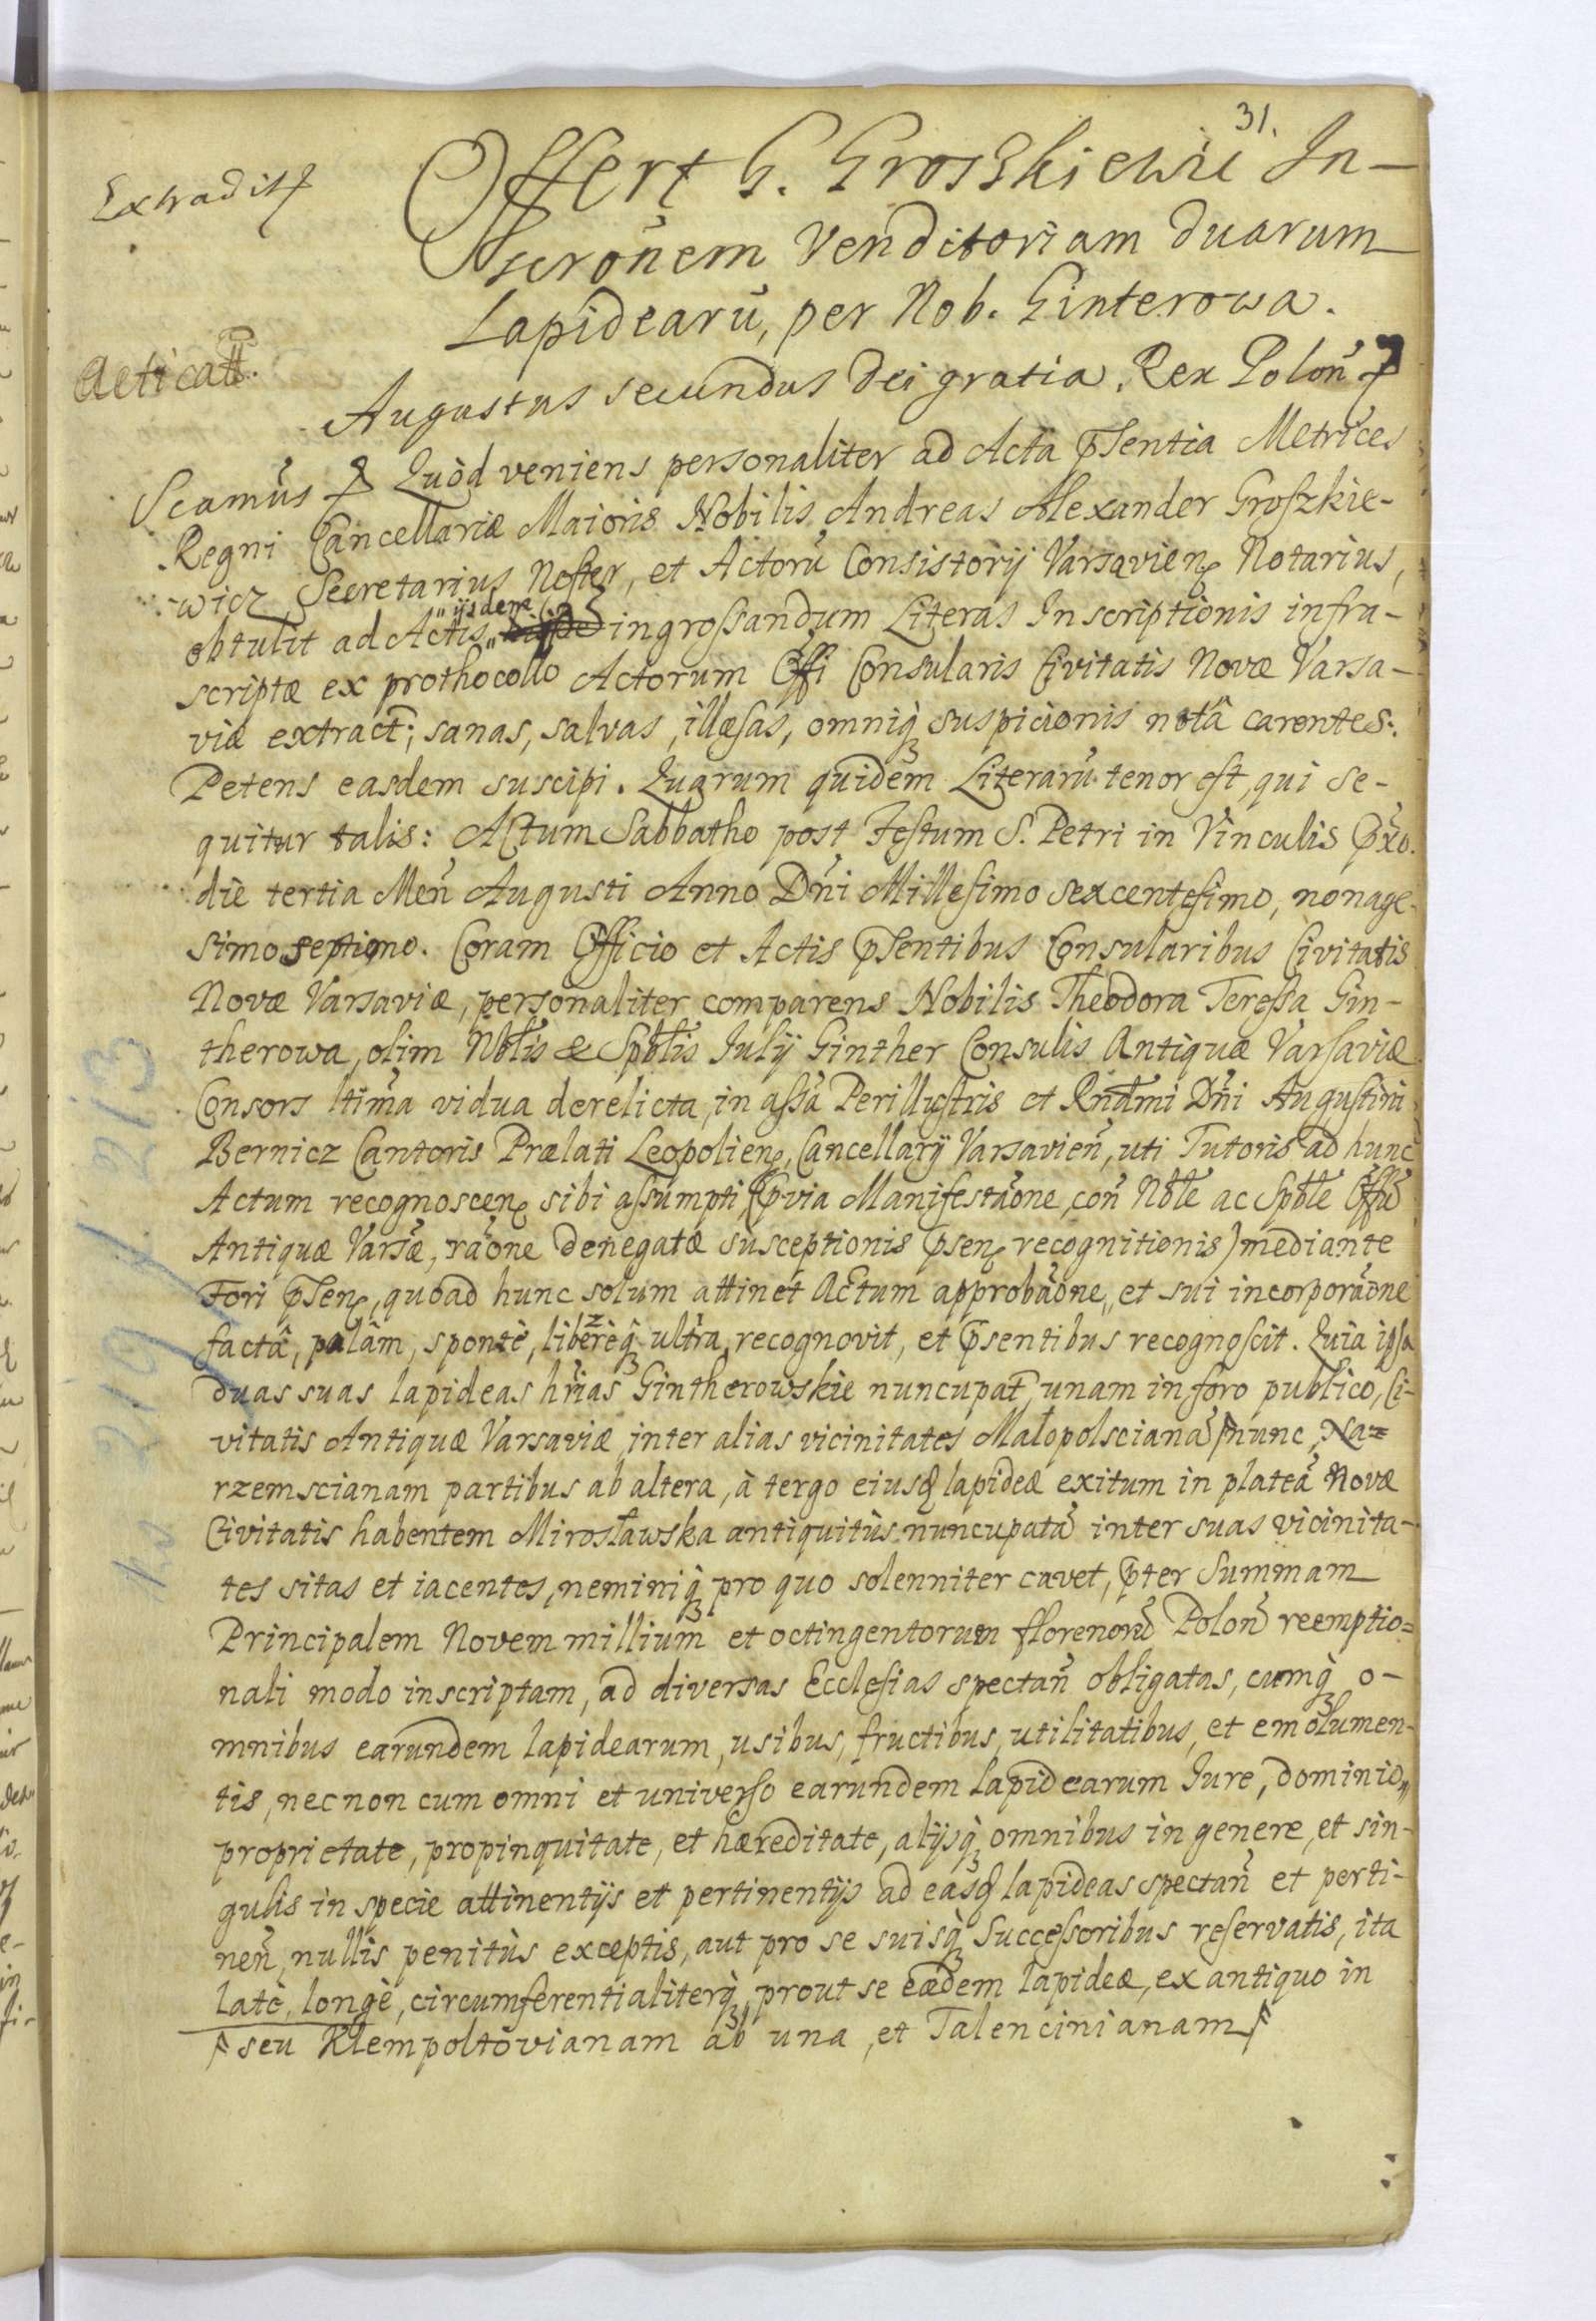 31.
Extradit
Offert G. Grosskiewic In-
scrōnem Venditoriam duarum
Lapidearū, per Nob. Ginterowa.
Acticatt.
Augustus secundus Dei gratia, Rex Poloñ
Scamūs Quòd veniens personaliter ad Acta p̄sentia Metrices
Regni Cancellariæ Maioris Nobilis Andreas Alexander Groszkie-
wicz Secretarius Noster, et Actorū Consistorij Varsavien. Notarius,
obtulit ad Actis „ijsdem ingrossandum Literas Inscriptionis infra-
scriptæ ex prothocollo Actorum Offi Consularis Civitatis Novæ Varsa-
viæ extract; sanas, salvas, illæsas, omniq; suspicionis notâ carentes:
Petens easdem suscipi. Quarum quidem Literarū tenor est, qui se-
quitur talis: Actum Sabbatho post Festum S. Petri in Vinculis p̄xo.
die tertia Meñ Augusti Anno Dñi Millesimo sexcentesimo, nonage-
simo septimo. Coram Officio et Actis p̄sentibus Consularibus Civitatis
Novæ Varsaviæ, personaliter comparens Nobilis Theodora Teressa Gin-
therowa, olim Nbłis & Spbłis Julij Ginther Consulis Antiquæ Varsaviæ
Consors ltima vidua derelicta, in assā Perillustris et Rndmi Dñi Augustini
Bernicz Cantoris Prælati Leopolien, Cancellarij Varsavieñ, uti Tutoris ad hunc
Actum recognoscen sibi assumpti, (p̄via Manifestāone, coñ Nbłe ac Spbłe Offō
Antiquæ Varsæ, rāone denegatæ susceptionis p̄sen recognitionis) mediante
Fori p̄sen, quoad hunc solum attinet Actum approbāone, et sui incorporāone
factâ, palàm, spontè, liberèq; ultra, recognovit, et p̄sentibus recognoscit. Quia ipsa
duas suas lapideas hrias Gintherowskie nuncupat, unam in foro publico, Ci-
vitatis Antiquæ Varsaviæ inter alias vicinitates Małopolscianā nunc, Na=
rzemscianam partibus ab altera, à tergo eiusd lapideæ exitum in plateā Novæ
Civitatis habentem Mirosławska antiquitùs nuncupatā inter suas vicinita-
tes sitas et iacentes, neminiq; pro quo solenniter cavet, p̄ter Summam
Principalem Novem millium et octingentorum florenorū Poloñ reemptio=
nali modo inscriptam, ad diversas Ecclesias spectañ obligatas, cumq; o-
mnibus earundem lapidearum, usibus, fructibus, utilitatibus, et emolumen-
tis, nec non cum omni et universo earundem lapidearum Jure, dominio,
proprietate, propinquitate, et hæreditate, alijsq; omnibus in genere, et sin-
gulis in specie attinentijs et pertinentijs ad easd lapideas spectañ et perti-
neñ, nullis penitùs exceptis, aut pro se suisq; Successoribus reservatis, ita
latè, longè, circumferentialiterq; prout se eædem lapideæ, ex antiquo in
seu Klempoltovianam ab una, et Talencinianam
No 219 / 213